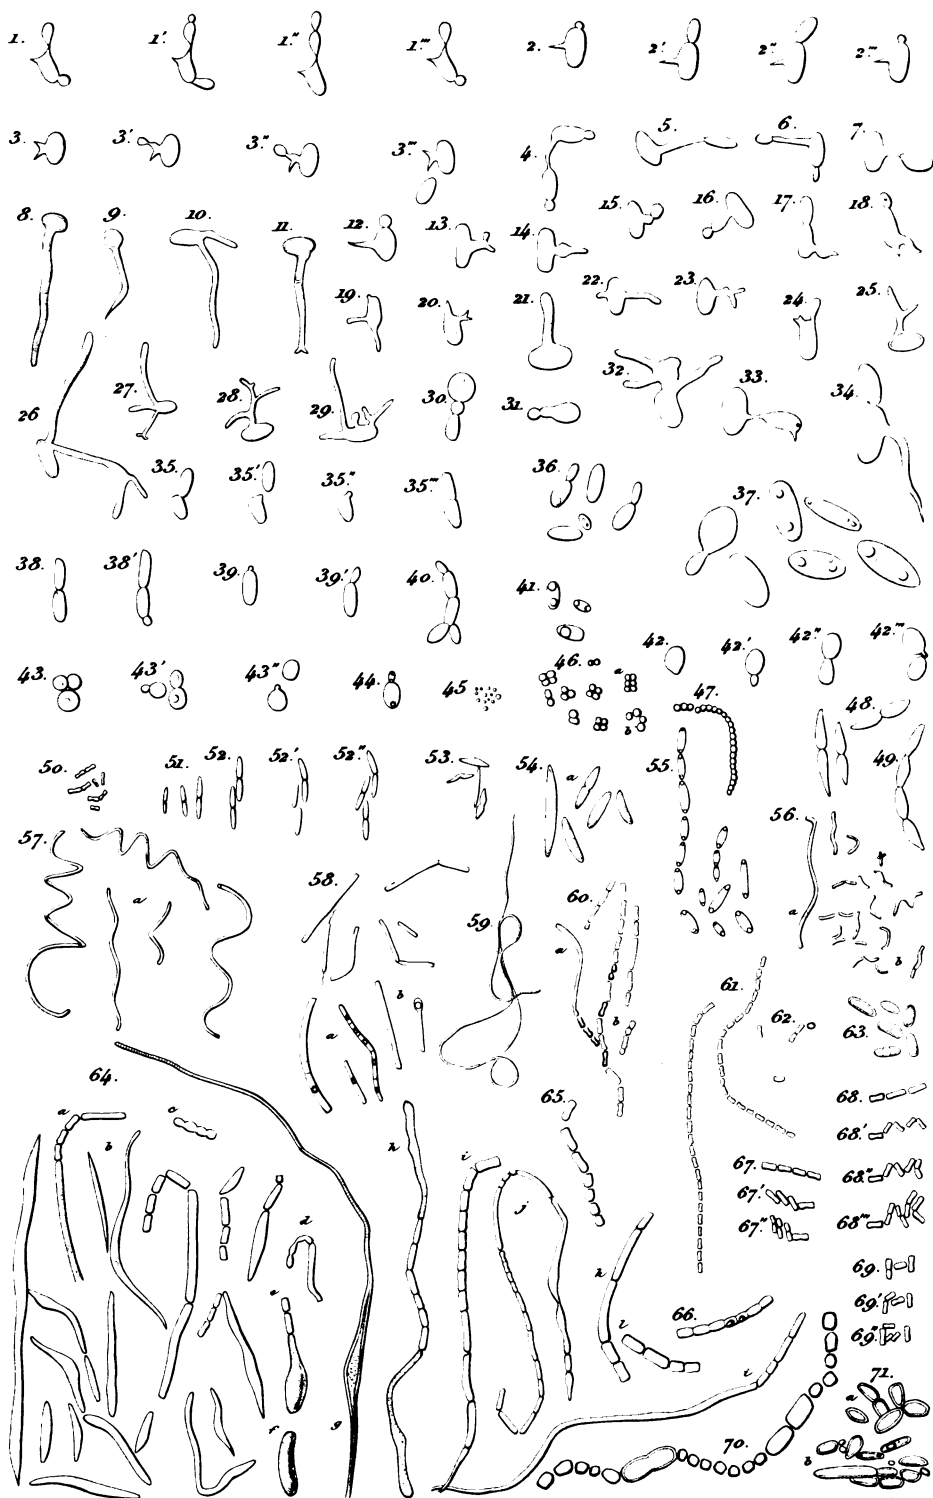 1. 1.' 1." 1."' 2. 2.' 2." 2."'
3. 3.' 3." 3."' 4. 5. 6. 7.
8. 9. 10. 11. 12. 13. 14. 15. 16. 17. 18.
19. 20. 21. 22. 23. 24. 25.
26 27. 28. 29. 30. 31. 32. 33. 34.
35. 35.' 35." 35."' 36. 37.
38. 38.' 39. 39.' 40. 41.
42. 42.' 42." 42."'
43. 43.' 43." 44. 45 46. a b 47. 48.
49.
50. 51. 52. 52.' 52." 53. 54. a 55. 56. a b
57. a 58. a b 59. 60. a b 61. 62. 63.
64. a b c d e f g h i j k l i
65. 66. 67. 67.' 67." 68. 68.' 68." 68."'
69. 69.' 69."
70. 71. a b